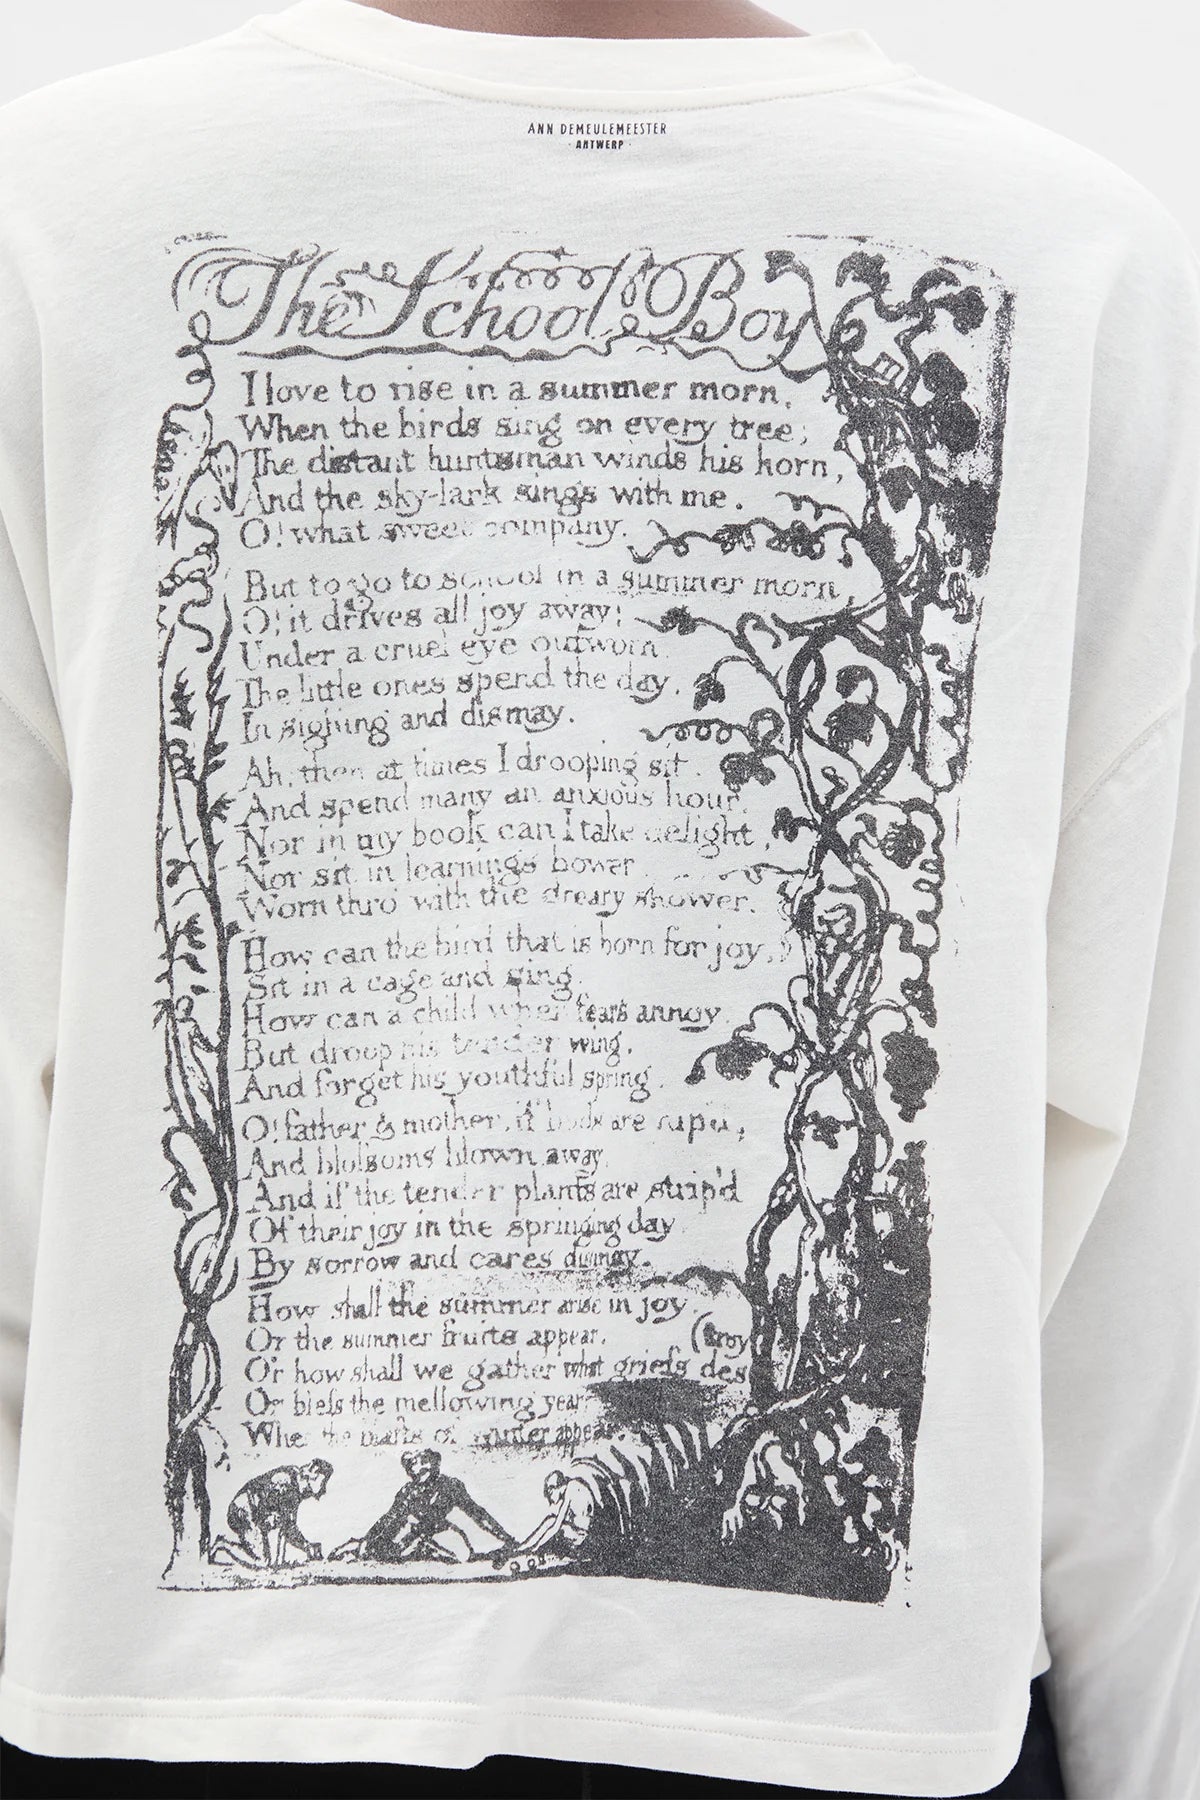 ANN DEMEULEMEESTER
· ANTWERP ·
The School Boy
I love to rise in a summer morn,
When the birds sing on every tree;
The distant huntsman winds his horn,
And the sky-lark sings with me.
O! what sweet company.
But to go to school in a summer morn,
O! it drives all joy away;
Under a cruel eye outworn.
The little ones spend the day,
In sighing and dismay.
Ah; then at times I drooping sit,
And spend many an anxious hour,
Nor in my book can I take delight,
Nor sit in learnings bower
Worn thro' with the dreary shower.
How can the bird that is born for joy,
Sit in a cage and sing.
How can a child when fears annoy
But droop his tender wing,
And forget his youthful spring.
O! father & mother, if buds are nip'd,
And blolsoms blown away,
And if the tender plants are strip'd
Of their joy in the springing day
By sorrow and cares dismay.
How shall the summer arise in joy.
Or the summer fruits appear. (troy
Or how shall we gather what griefs des
Or blefs the mellowing year,
When the blasts of winter appear.